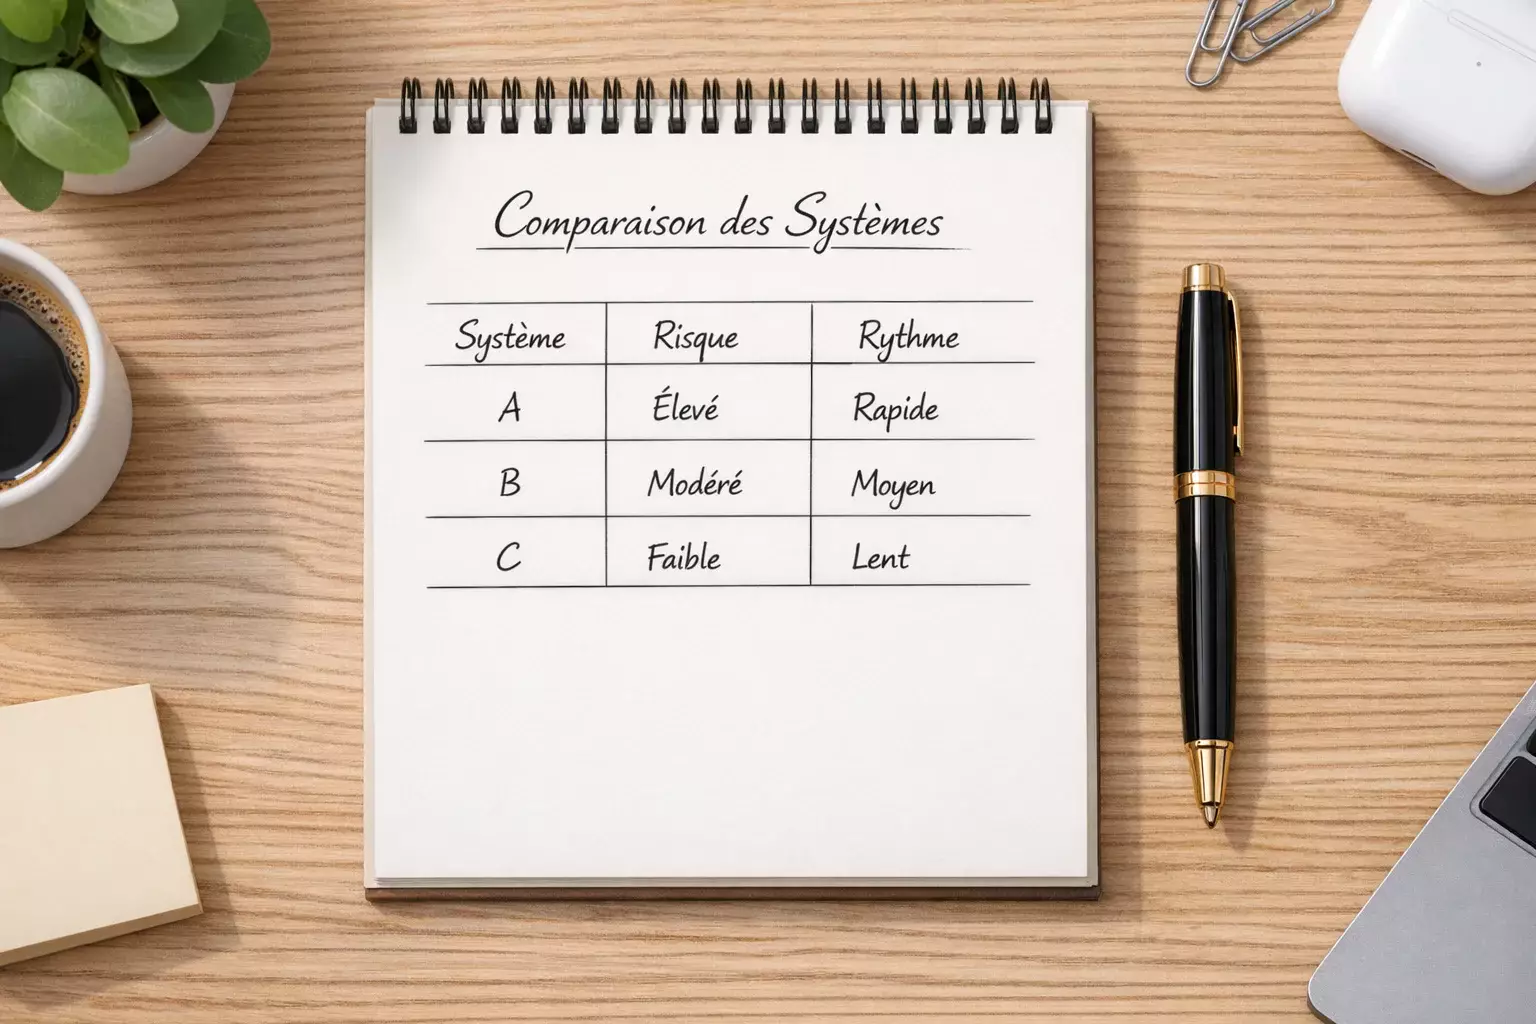 Comparaison des Systèmes
Système Risque Rythme
A Élevé Rapide
B Modéré Moyen
C Faible Lent